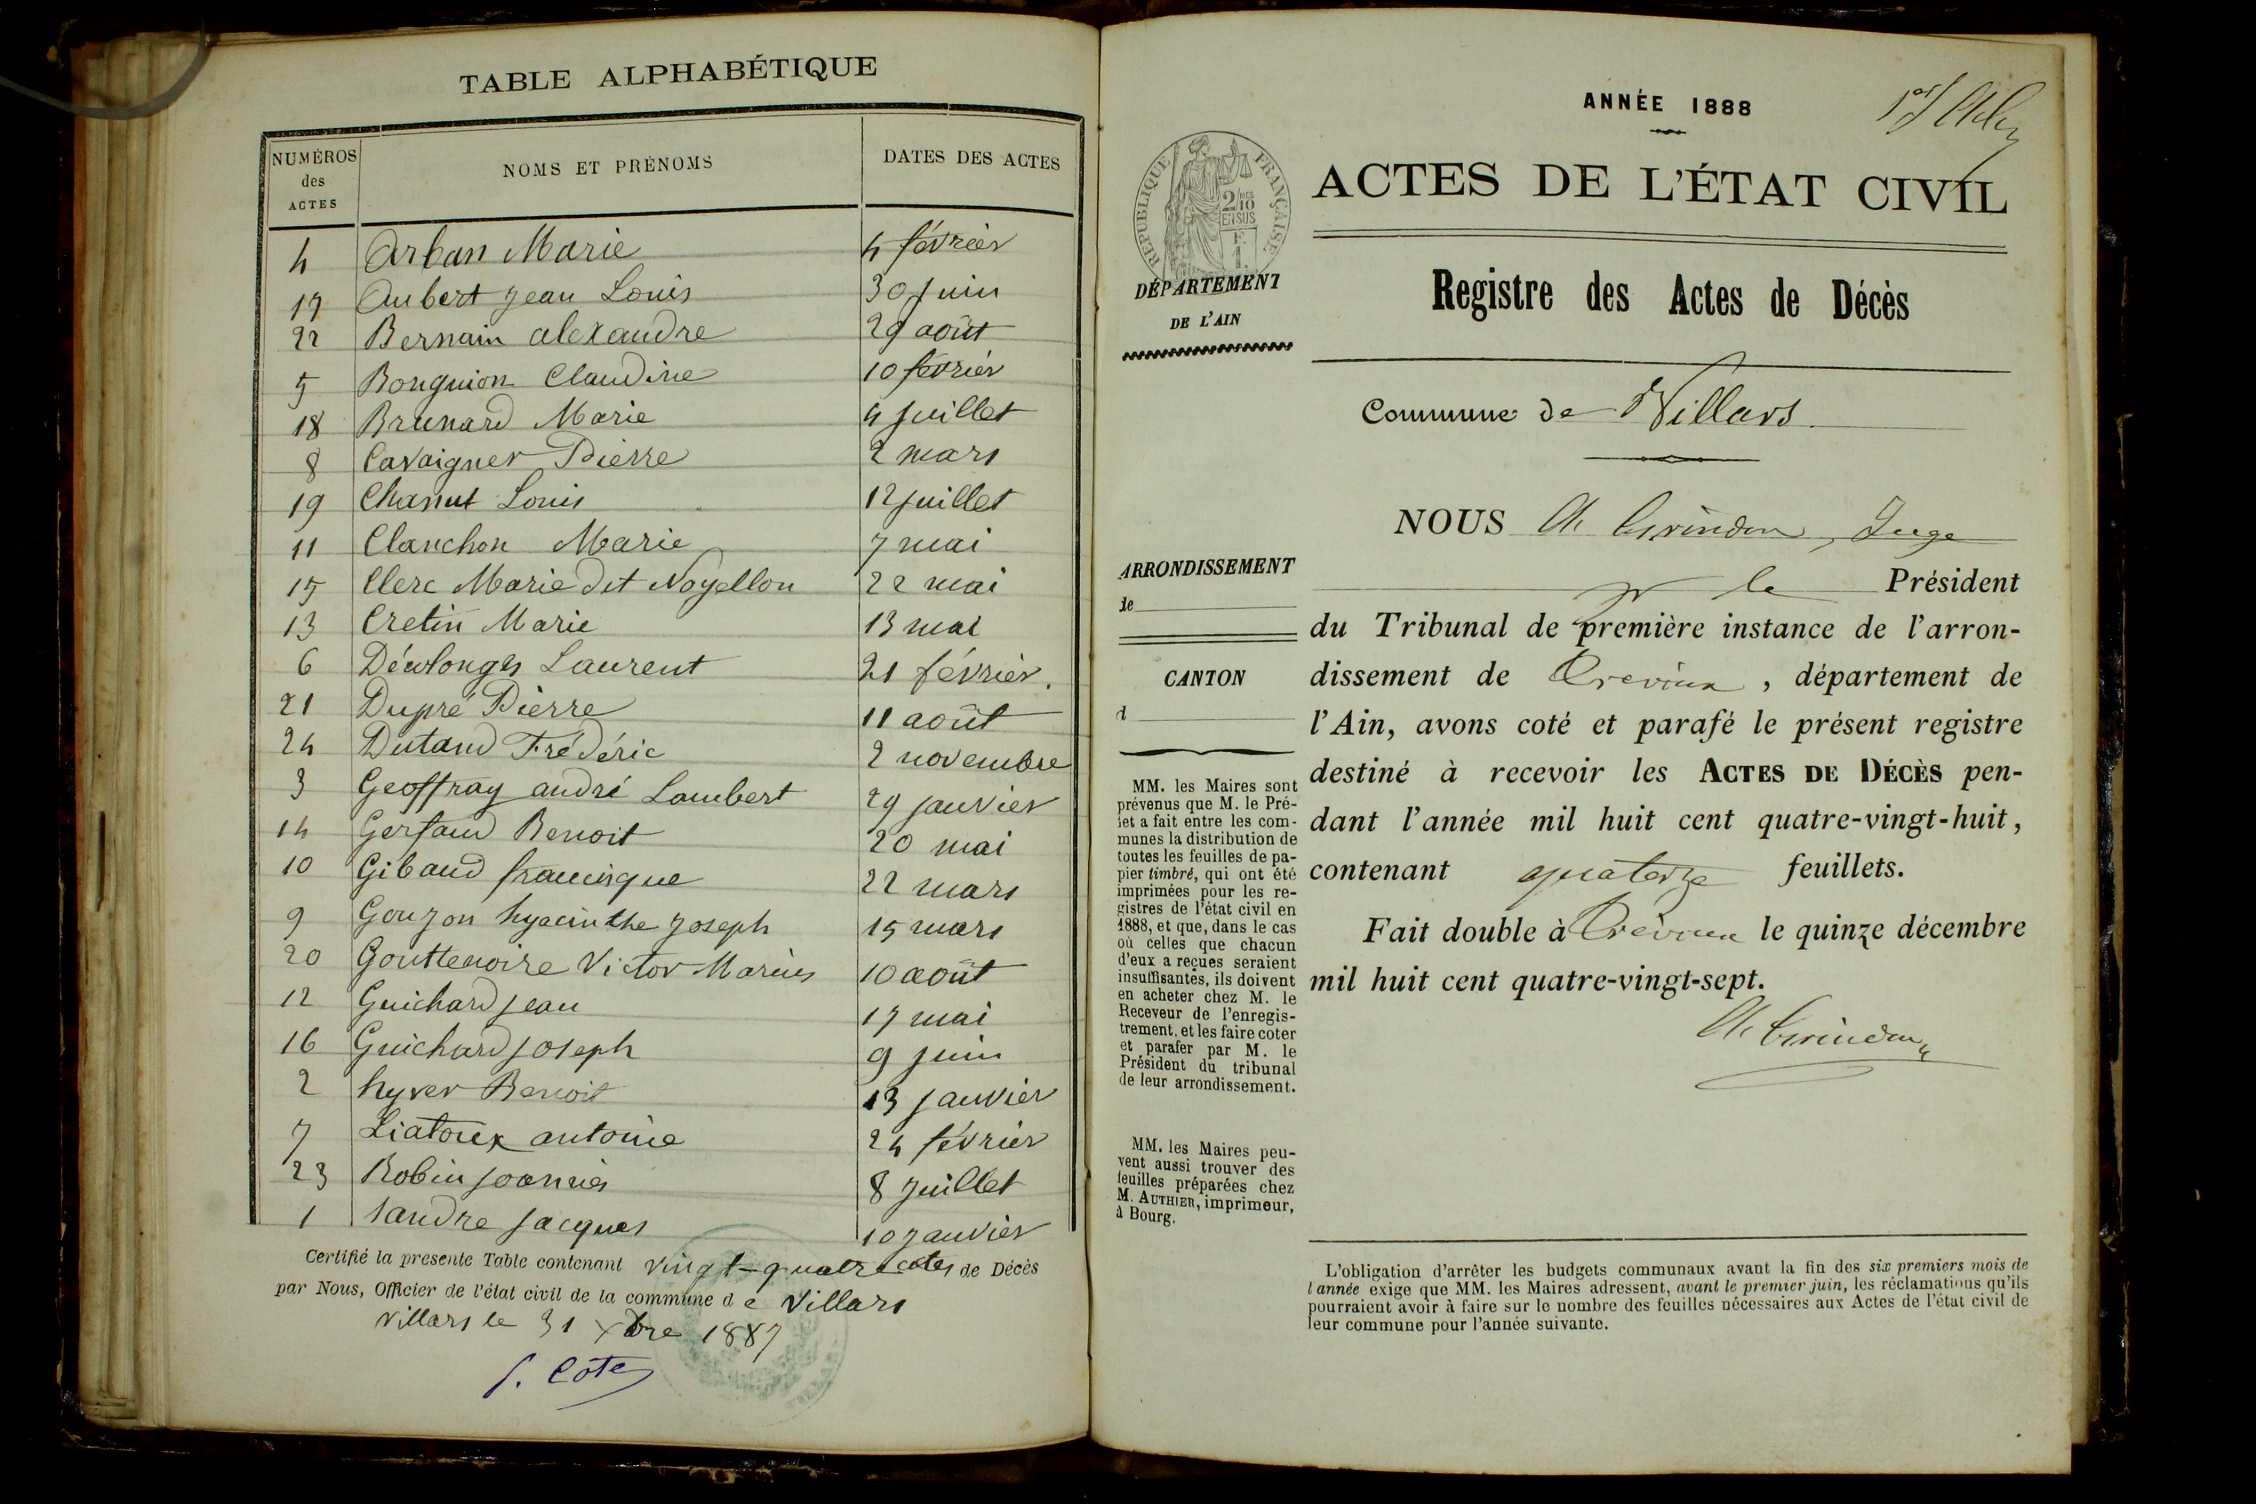 TABLE ALPHABÉTIQUE
NUMÉROS des ACTES NOMS ET PRÉNOMS DATES DES ACTES
4 Arban Marie 4 février
17 Aubert Jean Louis 30 juin
22 Bernain alexandre 29 août
5 Bonguion Claudine 10 février
18 Brunard Marie 4 juillet
8 Cavaigner Pierre 2 mars
19 Chanut Louis 12 juillet
11 Clanchon Marie 7 mai
15 Clerc Marie dit Noyellon 22 mai
13 Cretin Marie 13 mai
6 Laurent 21 février
21 Dupré Pierre 11 août
24 Dutaud Frédéric 2 novembre
3 Geoffray andré Lambert 29 janvier
14 Gerfaud Benoit 20 mai
10 Gibaud francisque 22 mars
9 Gouzon hyacinthe Joseph 15 mars
20 Gouttenoire Victor Marius 10 août
12 Guichard jean 17 mai
16 Guichard joseph 9 juin
2 hyver Benoit 13 janvier
7 Liatoux antoine 24 février
23 Robin joannès 8 juillet
1 Sandre jacques 10 janvier
Certifié la presente Table contenant vingt-quatre actes de Décès
par Nous, Officier de l'état civil de la commune de Villars
Villars le 31 Xbre 1887
Cote
ANNÉE 1888
ACTES DE L'ÉTAT CIVIL
RÉPUBLIQUE FRANÇAISE
2/10 EN SUS
DÉPARTEMENT
DE L'AIN
Registre des Actes de Décès
Commune de Villars
NOUS Grindon, Juge
pr le Président
du Tribunal de première instance de l'arron-
dissement de Trévoux, département de
l'Ain, avons coté et parafé le présent registre
destiné à recevoir les ACTES DE DÉCÈS pen-
dant l'année mil huit cent quatre-vingt-huit,
contenant quatorze feuillets.
Fait double à Trévoux le quinze décembre
mil huit cent quatre-vingt-sept.
Grindon
ARRONDISSEMENT
de
CANTON
d
MM. les Maires sont
prévenus que M. le Pré-
fet a fait entre les com-
munes la distribution de
toutes les feuilles de pa-
pier timbré, qui ont été
imprimées pour les re-
gistres de l'état civil en
1888, et que, dans le cas
où celles que chacun
d'eux a reçues seraient
insuffisantes, ils doivent
en acheter chez M. le
Receveur de l'enregis-
trement, et les faire coter
et parafer par M. le
Président du tribunal
de leur arrondissement.
MM. les Maires peu-
vent aussi trouver des
feuilles préparées chez
M. AUTHIER, imprimeur,
à Bourg.
L'obligation d'arrêter les budgets communaux avant la fin des six premiers mois de
l'année exige que MM. les Maires adressent, avant le premier juin, les réclamations qu'ils
pourraient avoir à faire sur le nombre des feuilles nécessaires aux Actes de l'état civil de
leur commune pour l'année suivante.